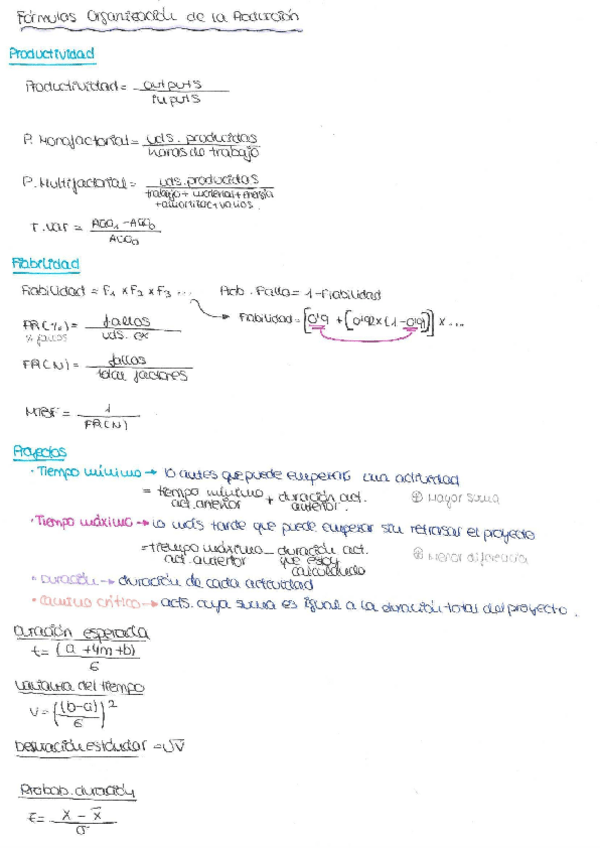 Fórmulas Organización de la Producción
Productividad
Productividad = outputs / inputs
P. Monofactorial = uds. producidas / horas de trabajo
P. Multifactorial = uds. producidas / trabajo + material + energía + amortizac + varios.
T. var = Año₁ - Año₀ / Año₀
Fiabilidad
Fiabilidad = F₁ x F₂ x F₃ ... Prob. Fallo = 1 - Fiabilidad
→ Fiabilidad = [0'9 + [0'92 x (1 - 0'9)]] x ...
FR(%) = fallos / uds. ex
% fallos
FR(N) = fallos / total factores
MTBF = 1 / FR(N)
Proyectos
· Tiempo mínimo → lo antes que puede empezar una actividad
= tiempo mínimo act. anterior + duración act. anterior. ⊕ Mayor suma
· Tiempo máximo → lo más tarde que puede empezar sin retrasar el proyecto
= tiempo máximo act. anterior - duración act. que estoy calculando ⊕ Menor diferencia
· Duración → duración de cada actividad
· Camino crítico → acts. cuya suma es igual a la duración total del proyecto.
Duración esperada
t = (a + 4m + b) / 6
Varianza del tiempo
V = ((b-a) / 6)²
Desviación estándar = √V
Probab. duración
z = x - x̄ / σ